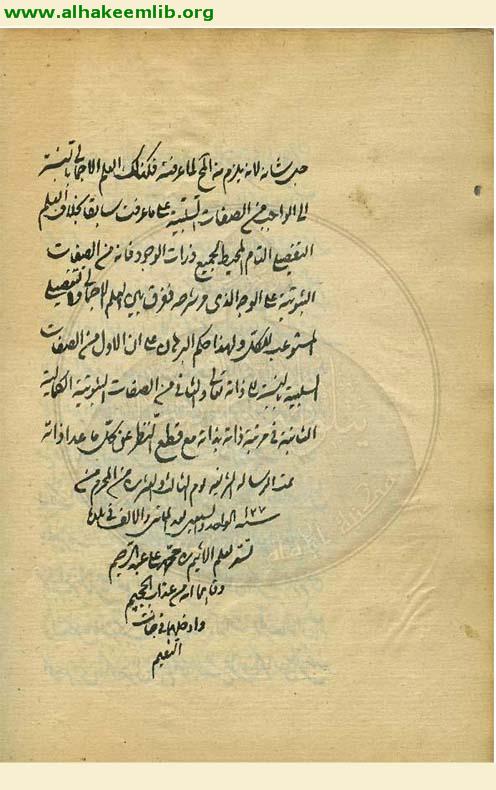 www.alhakeemlib.org
جل شانه لانه يلزم منه المح لما عرفته فكذلك العلم الاجمالي بالنسبة
الى الواجب من الصفات السلبية على ما عرفت سابقا بخلاف العلم
التفصيلي التام المحيط لجميع ذرات الوجود فانه من الصفات
الثبوتية على الوجه الذى مر شرحه ففرق بين العلم الاجمالي والتفصيلي
المستوعب للكل ولهذا حكم البرهان على ان الاول من الصفات
السلبية بالنسبة الى ذاته تعالى والثاني من الصفات الثبوتية الكمالية
الثابتة في مرتبة ذاته بذاته مع قطع النظر عن كل ما عدا ذاته
تمت الرسالة الشريفة يوم الثالث والعشرين من المحرم من
سنة ١٢٧١ الواحد والسبعين بعد المائتين والالف في بلدة
بقلم الاثيم بن عبد الرحيم
وقاهما الله من عذاب الجحيم
وادخلهما في جنات
النعيم